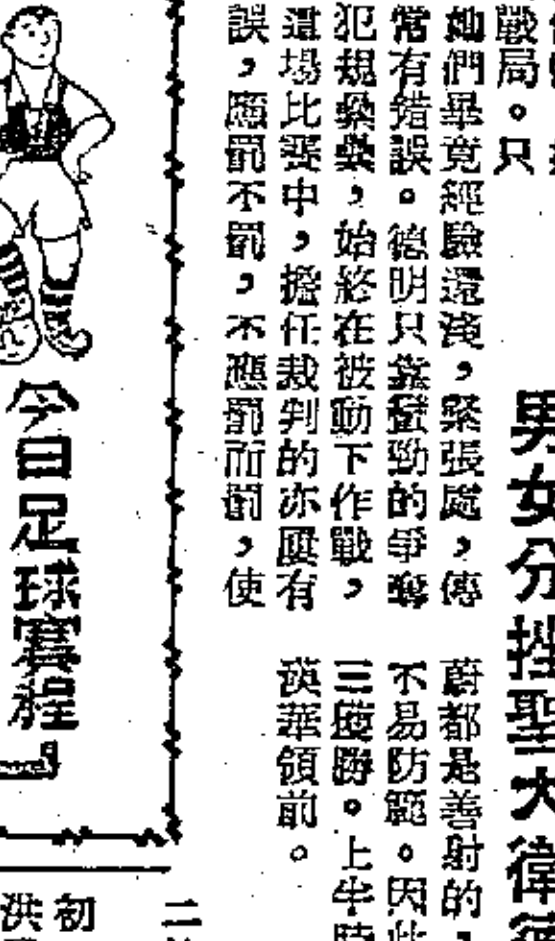 戰局。只
她們畢竟經驗還淺，緊張處，傳
常有錯誤。德明只靠蠻勁的爭奪
犯規纍纍，始終在被動下作戰，
這場比賽中，擔任裁判的亦屢有
誤，應罰不罰，不應罰而罰，使
男女分挫聖大衛
蔚都是善射的，
不易防範。因此
三度勝。上半時
漢華領前。
今日足球賽程
初
洪
二